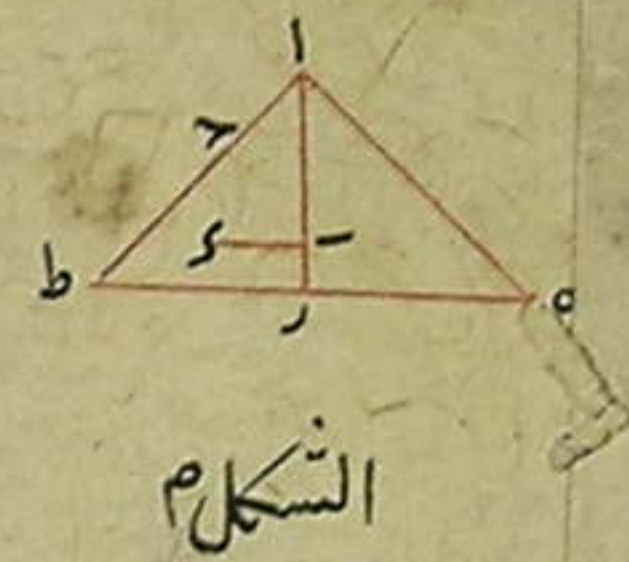 ا
ح
ب
د
ط
ر
ه
الشكل م